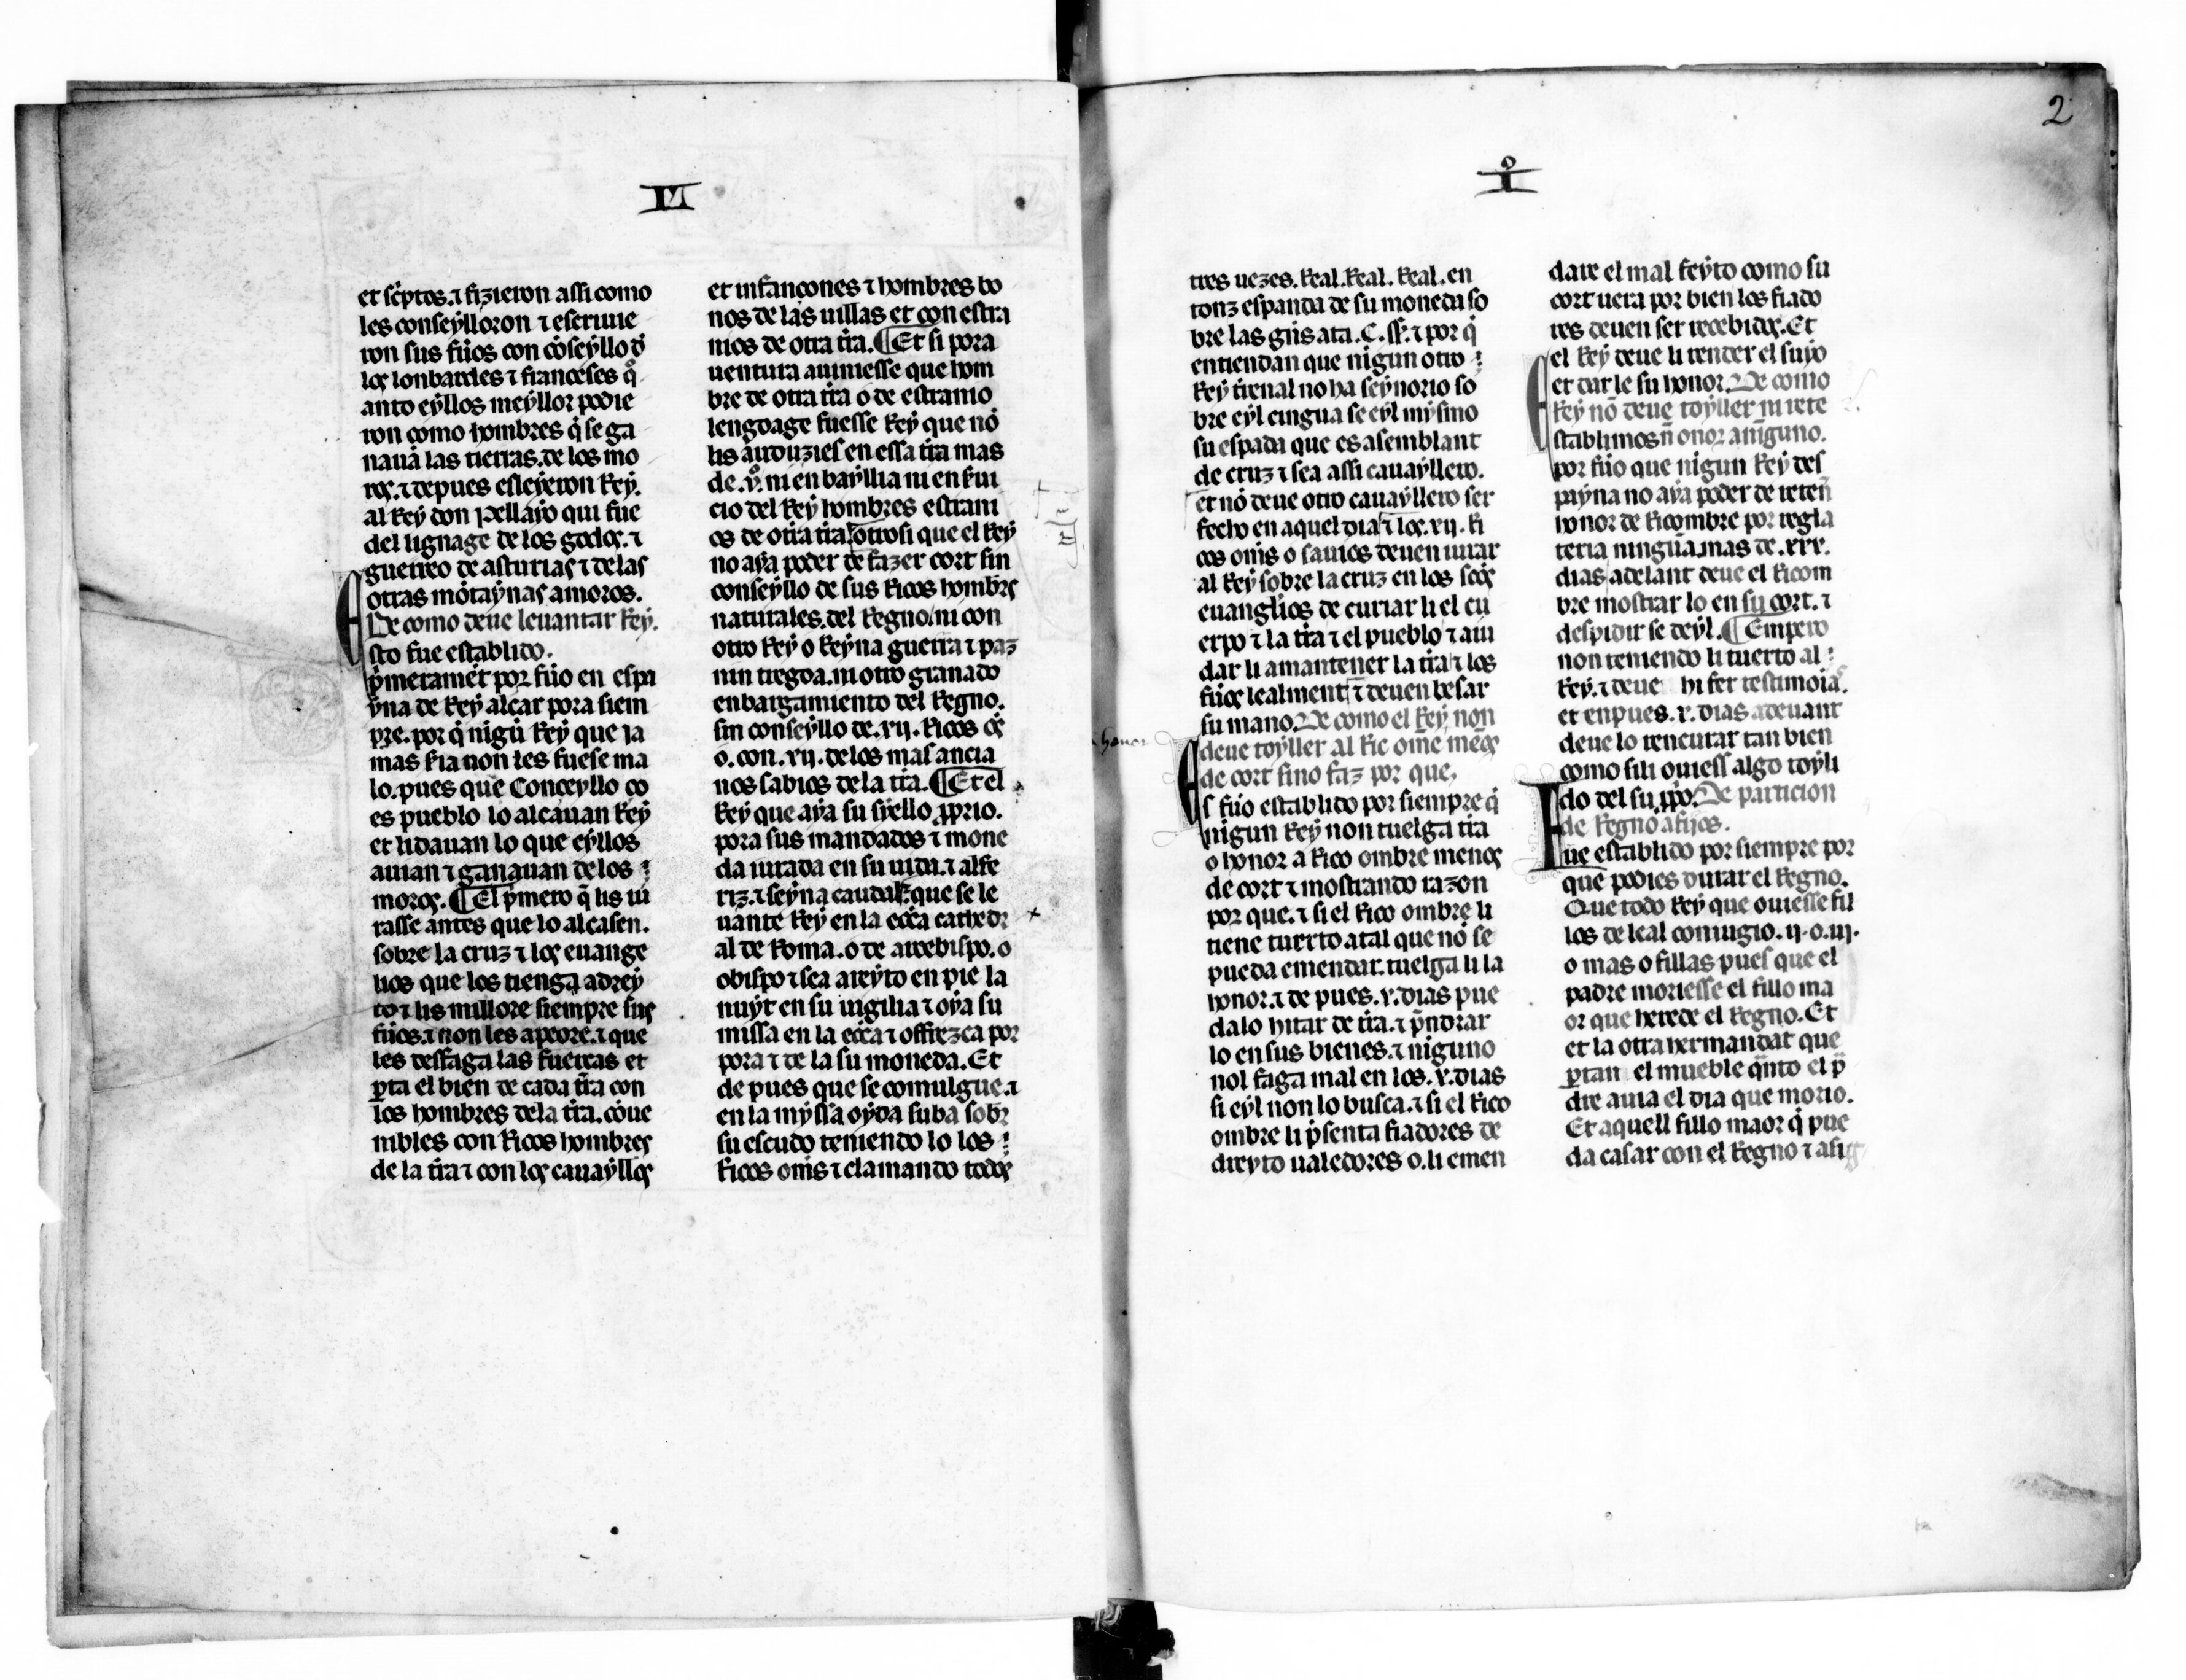 LI
et sc̃ptos. ⁊ fizieron assi como
les conseylloron ⁊ escriuie
ron sus fu̾os con cõseyllo ð
los lonbardes ⁊ franceses q̃
anto eyllos meyllor podie
ron como hombres q̃ se ga
nauã las tierras. de los mo
ros. ⁊ depues esleyeron Rey.
al Rey don Pellayo qui fue
del lignage de los godos. ⁊
guerreo de asturias ⁊ delas
otras mõtaynas a moros.
De como deue leuantar Rey.
E sto fue establido.
p̃merament por fu̾o en espa
yna de Rey alçar pora siem
pre. por q̃ nigũ Rey que ia
mas s̾ia non les fuese ma
lo. pues que Conceyllo co
es pueblo lo alçauan Rey
et lidauan lo que eyllos
auian ⁊ ganauan delos
moros. ¶ El p̃mero q̃ lis iu
rasse antes que lo alcasen.
sobre la cruz ⁊ los euange
lios que los tienga adrey
to ⁊ lis millore siempre sus
fu̾os. ⁊ non les apeore. ⁊ que
les desfaga las fuerças et
p̱ta el bien de cada tr̃ra con
los hombres dela tr̃ra. cõue
nibles con Ricos hombres
de la tr̃ra ⁊ con los cauayllos
et infançones ⁊ hombres bo
nos de las uillas et con estra
nios de otra tr̃ra. ¶ Et si pora
uentura auiniesse que hom
bre de otra tr̃ra o de estranio
lengoage fuesse Rey que nõ
lis aduzies en essa tr̃ra mas
de .v. ni en bayllia ni en s̾ui
cio del Rey hombres estrani
os de otra tr̃ra. otrosi que el Rey
no aya poder de fazer cort sin
conseyllo de sus Ricos hombr̃s
naturales. del Regno. ni con
otro Rey o Reyna guerra ⁊ paz
nin tregoa. ni otro granado
enbargamiento del Regno.
sin conseyllo de .xij. Ricos os̃
o. con .xij. delos mas ancia
nos sabios dela tr̃ra. ¶ Et el
Rey que aya su syello p̱prio.
pora sus mandados ⁊ mone
da iurada en su uida. ⁊ alfe
riz. ⁊ seyna caudal. ⁊ que se le
uante Rey en la ecc̃a cathedr
al de Roma. o de arcebispo. o
obispo ⁊ sea areyto en pie la
nuyt en su uigilia ⁊ oya su
missa en la ecc̃a ⁊ offrezca por
pora ⁊ de la su moneda. Et
de pues que se comulgue. ⁊
en la myssa oyda suba sobr̃
su escudo teniendo lo los
Ricos om̃s ⁊ clamando todos
2
I°
tres uezes. Real. Real. Real. en
tonz espanda de su moneda so
bre las gñs ata. C. ss. ⁊ por q̃
entiendan que nigun otro
Rey tr̃enal no ha seynorio so
bre eyl cingua se eyl mysmo
su espada que es asemblant
de cruz ⁊ sea assi cauayllero.
et nõ deue otro cauayllero ser
fecho en aquel dia ⁊ los .xij. Ri
cos om̃s o sauios deuen iurar
al Rey sobre la cruz en los sc̃os
euangl̃ios de curiar li el cu
erpo ⁊ la tr̃ra ⁊ el pueblo ⁊ aiu
dar li a mantener la tr̃ra ⁊ los
fu̾os lealment ⁊ deuen besar
su mano. De como el Rey non
deue toyller al Ric ome menos
de cort sino faz por que.
honor
E s fu̾o establido por siempre q̃
nigun Rey non tuelga tr̃ra
o honor a Rico ombre menos
de cort ⁊ mostrando razon
por que. ⁊ si el Rico ombre li
tiene tuerto atal que nõ se
pueda emendar. tuelga li la
honor. ⁊ de pues .x. dias pue
dalo hitar de tr̃ra. ⁊ p̃ndrar
lo en sus bienes. ⁊ niguno
nol faga mal en los .x. dias
si eyl non lo busca. ⁊ si el Rico
ombre li p̃senta fiadores de
dreyto ualedores o. li emen
dare el mal feyto como su
cort uera por bien los fiado
res deuen ser recebidos. Et
el Rey deue li render el suyo
et dar le su honor. De como
Rey nõ deue toyller ni rete
ñ onor a niguno.
E stablimos
por fu̾o que nigun Rey des
payna no aya poder de reteñ
honor de Ricombre por regla
teria ninguna. mas de .xxx.
dias adelant deue el Ricom
bre mostrar lo en su cort. ⁊
despidir se deyl. ¶ Empero
non teniendo li tuerto al
Rey. ⁊ deue hi fer testimoias.
et enpues .x. dias adeuant
deue lo rencurar tan bien
como sili ouiess algo toyli
do del su p̱po. De particion
de Regno a fijos.
F ue establido por siempre por
que podies durar el Regno.
Que todo Rey que ouiesse fil
los de leal coniugio .ij. o .iij.
o mas o fillas pues que el
padre moriesse el fillo ma
or que herede el Regno. Et
et la otra hermandat que
p̱tan el mueble q̃nto el p̃
dre auia el dia que morio.
Et aquell fillo maor q̃ pue
da casar con el Regno ⁊ asig